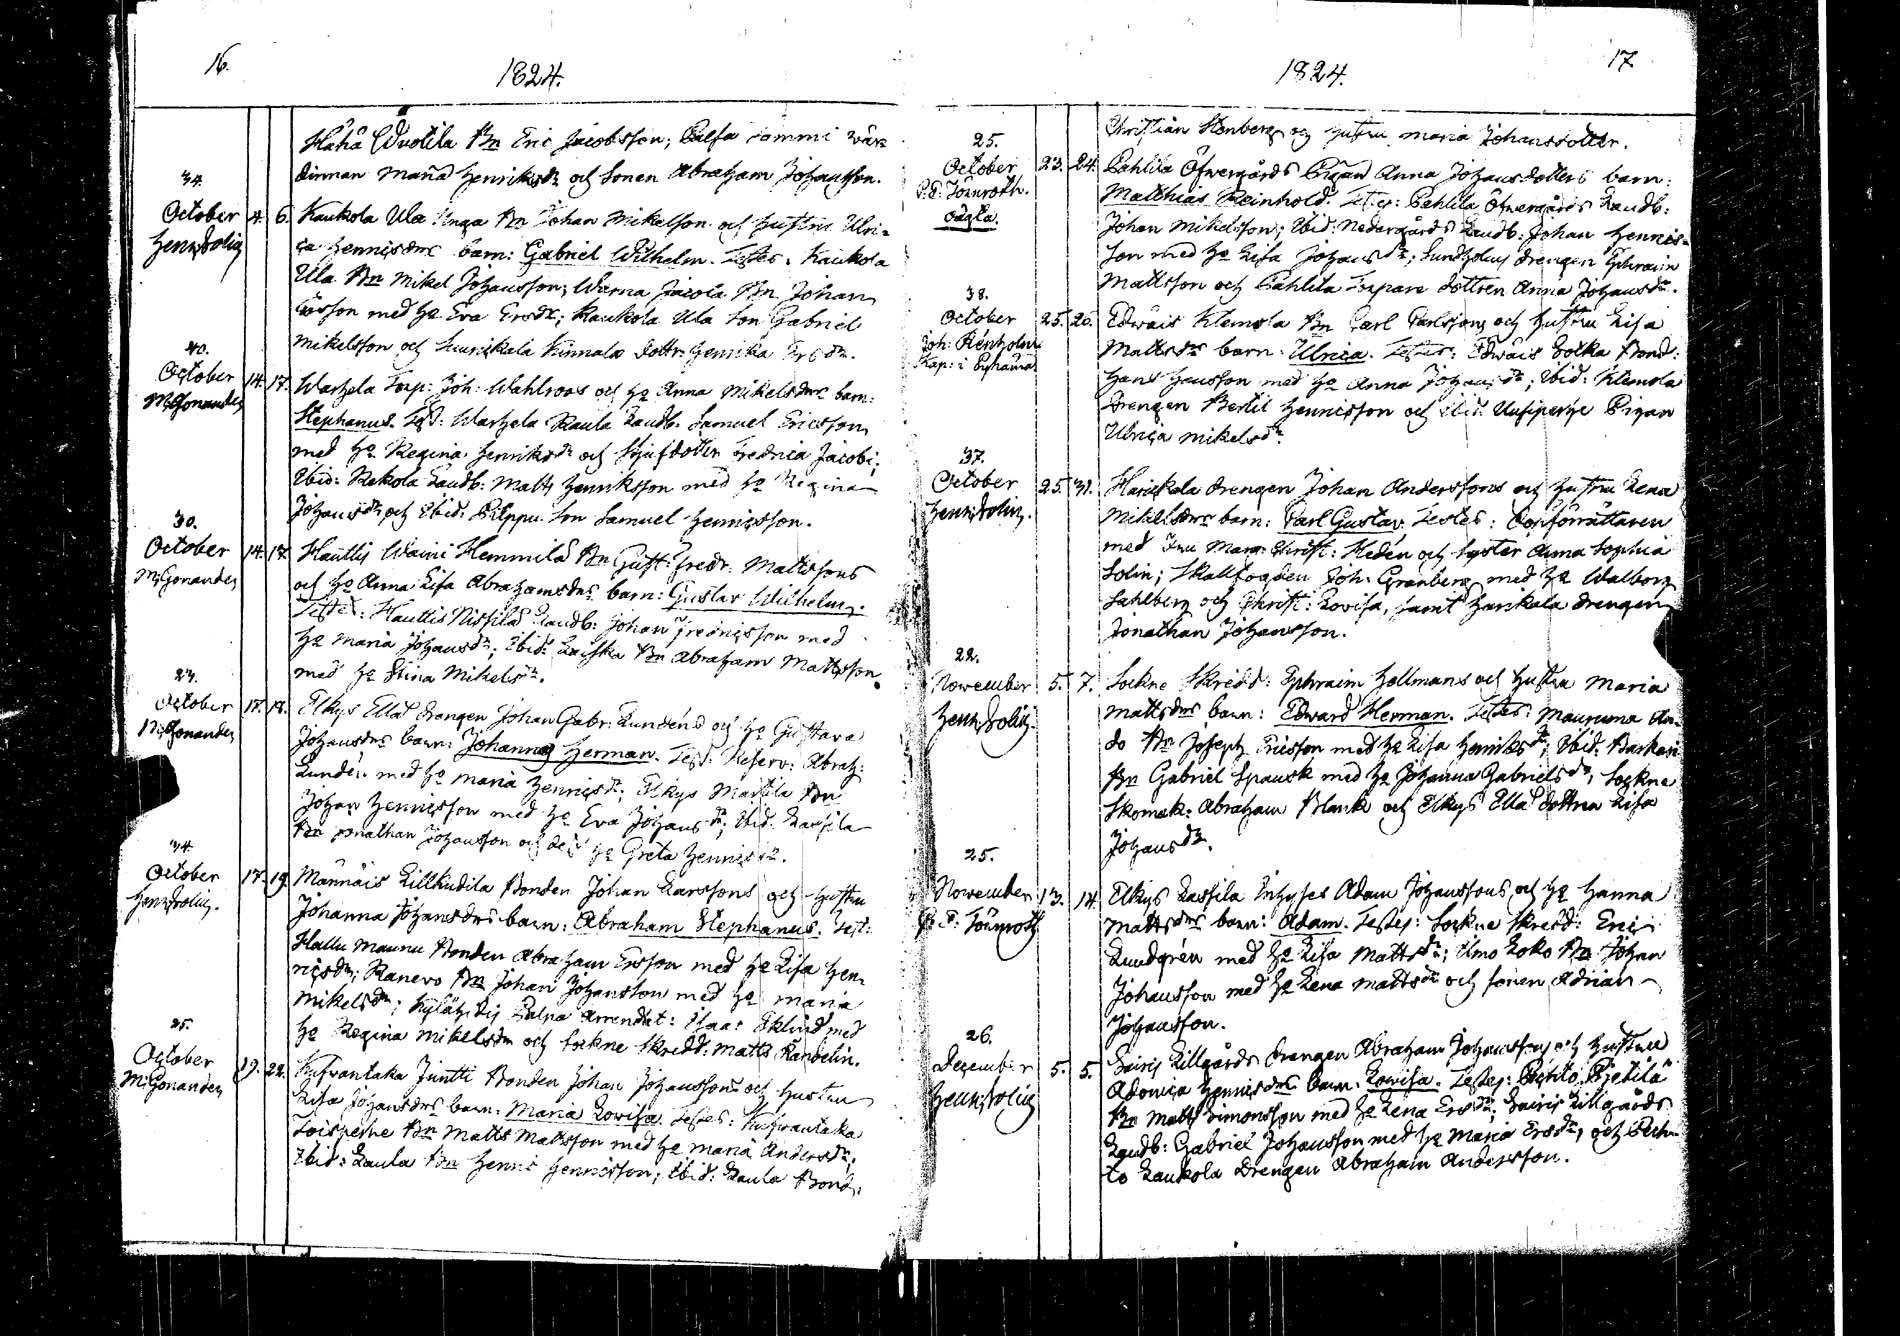 16.
1824.
Håhå Wuotila Bn Eric Jacobsson; Calfa Lammi wär-
dinnan Maria Henriksdr och Sonen Abraham Johansson.
34.
October 4. 6. Kaukola Ula Bn Johan Mikelson och Hustru Ulri-
Henr. Solin
ca Hennicsdrs barn: Gabriel Wilhelm. Testes: Kaukola
Ula Bn Mikel Johansson; Warna Jacola Bn Johan
Ersson med Ho Eva Ersdr; Kaukola Ula Son Gabriel
Mikelsson och Kinnala dottr. Henrica Ersdr.
40.
October 14. 17. Warhela Torp: Joh: Wahlroos och Ho Anna Mikelsdrs barn:
M. Gonander
Stephanus. Test: Warhela Raula Landb: Samuel Ericsson
med Ho Regina Henriksdr och Styfdotter Fredrica Jacobi;
Ibid: Rekola Landb: Matts Henriksson med Ho Regina
Johansdr och Ibid. Pileppu Son Samuel Hennicsson.
30.
October 14. 17. Hautlis Waini Hemmilä Bn Gust: Fredr: Mattssons
M. Gonander
och Ho Anna Lisa Abrahamsdrs barn: Gustav Wilhelm.
Testes: Hautlis Nissilä Landb: Johan Fredricsson med
Ho Maria Johansdr; Ibid: Bn Abraham Mattsson
med Ho Stina Mikelsdr.
23.
October 17. 18. Elkys Ellä drengen Johan Gabr: Lundéns och Ho Gustava
M. Gonander
Johansdrs barn: Johannes Herman. Test: Reserv: Abrah:
Lundén med Ho Maria Hennicsdr; Elkys Marttila Bn
Johan Hennicsson med Ho Eva Johansdr; Ibid. Lassila
Bn Jonathan Johansson och dess Ho Greta Hennicsdr.
34.
October 17. 19. Männäis Lillkudila Bonden Johan Larssons och Hustru
Henr. Solin.
Johanna Johansdrs barn: Abraham Stephanus. Test:
Hallu Maunu Bonden Abraham Ersson med Ho Lisa Hen-
ricsdr; Ranero Bn Johan Johansson med Ho Maria
Mikelsdr; Arrendat: Isaac Eklind med
Ho Regina Mikelsdr och Sockne Skredd: Matts Randelin.
25.
October 19. 22. Kusvantaka Juntti Bonden Johan Johanssons och Hustru
M. Gonander
Lisa Johansdrs barn: Maria Lovisa. Testes: Kusvantaka
Toispeshe Bn Matts Mattsson med Ho Maria Andersdr;
Ibid: Laula Bn Henric Hennicsson; Ibid: Laula Bond:
17.
1824.
Christian Stenberg och Hustru Maria Johansdotter.
25.
October 23. 24. Pahlila Öfwergårds Pigan Anna Johansdotters barn:
P. E. Törnroth.
oägta.
Matthias Reinhold. Testes: Pahlila Öfwergårds Landb:
Johan Mikelsson; Ibid: Nedergårds Landb: Johan Hennics-
son med Ho Lisa Johansdr; Sundholms drengen Ephraim
Mattsson och Pahlila Torpare dottren Anna Johansdr.
38.
October 25. 26. Edwäis Klemola Bn Carl Carlssons och Hustru Lisa
Joh: Renholm
Kap: i Pyhäma
Mattsdrs barn: Ulrica. Testes: Edwäis Botka Bond:
Hans Hansson med Ho Anna Johansdr; Ibid: Klemola
drengen Bertil Hennicsson och ibid. Uusipeshe Pigan
Ulrica Mikelsdr.
37.
October 25. 31. Harickala drengen Johan Anderssons och Hustru Lena
Henr. Solin.
Mikelsdrs barn: Carl Gustav. Testes: Coxförrättaren
med Fru Marg: Christ: Hedén och Syster Anna Sophia
Solin; Skallfogden Joh: Granberg med Ho Walborg
Sahlberg och Christ: Lovisa, samt Harikala drengen
Jonathan Johansson.
22.
November 5. 7. Sockne Skredd: Ephraim Hollmans och Hustru Maria
Henr. Solin
Mattsdrs barn: Edward Herman. Testes: Mauruma An-
do Bn Joseph Ericsson med Ho Lisa Henriksdr; Ibid: Barkari
Bn Gabriel Spansk med Ho Johanna Gabrielsdr; Sockne
Skomak: Abraham Blank och Elkys Ellä dottren Lisa
Johansdr.
25.
November 13. 14. Elkys Lassila Inhyses Adam Johanssons och Ho Hanna
P. E. Törnroth
Mattsdrs barn: Adam. Testes: Sockne Skredd: Eric
Lundgrén med Ho Lisa Mattsdr; Elmo Loko Bn Johan
Johansson med Ho Lena Mattsdr och sonen Adrian
Johansson.
26.
December 5. 5. Sairis Lillgårds drengen Abraham Johanssons och Hustru
Henr. Solin
Adonica Hennicsdrs barn: Lovisa. Testes: Pehto Pietilä
Bn Matts Simonsson med Ho Lena Ersdr; Sairis Lillgårds
Landb: Gabriel Johansson med Ho Maria Ersdr, och Peh-
to Laukola Drengen Abraham Andersson.